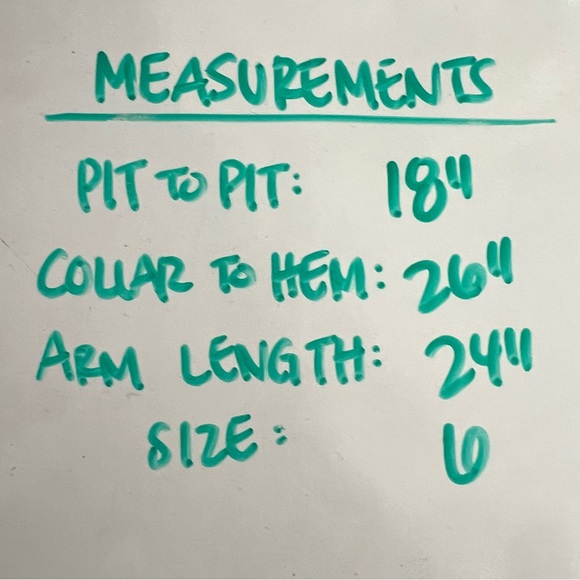 MEASUREMENTS
PIT TO PIT: 18"
COLLAR TO HEM: 26"
ARM LENGTH: 24"
SIZE: 6